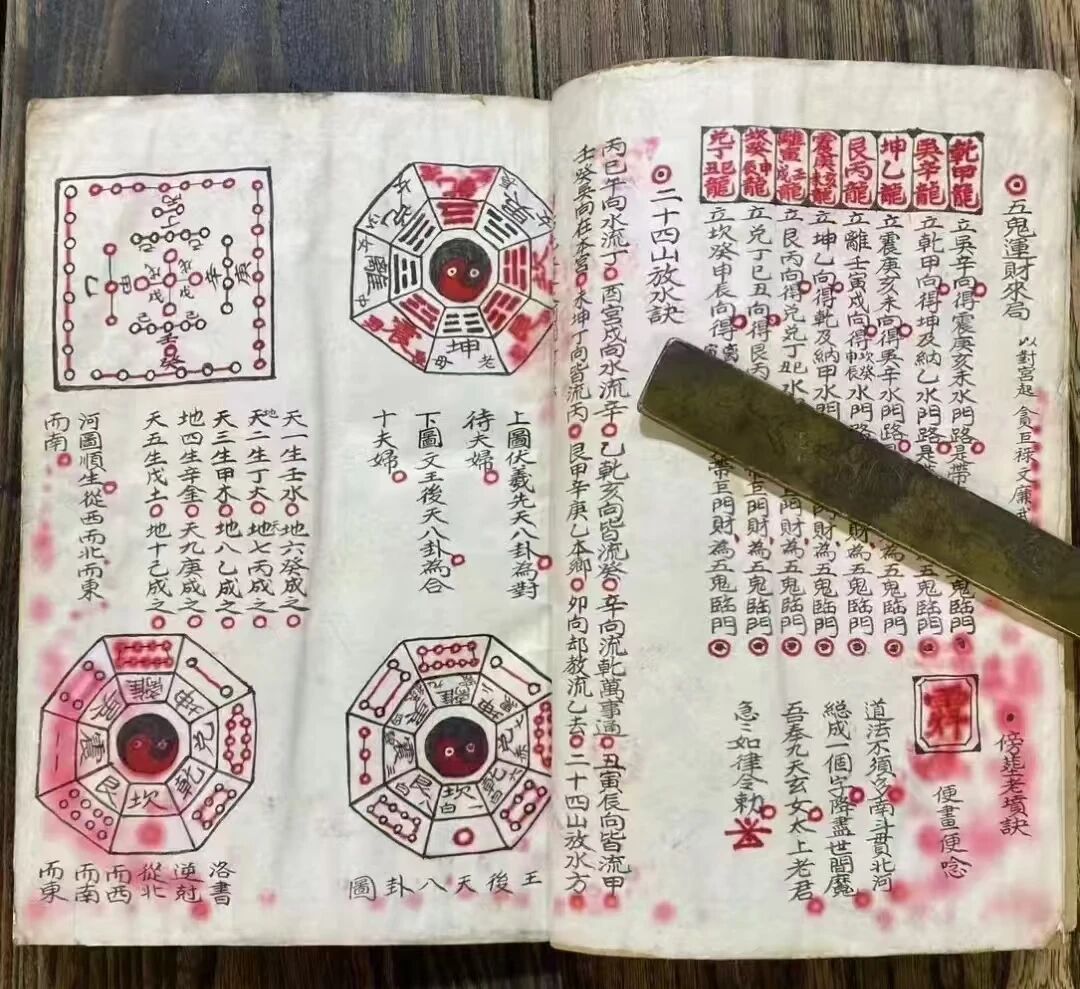 五鬼運財來局
以對宮起 貪巨祿文廉武
乾甲龍 立巽辛向得震庚亥未水門路是帶 鬼臨門
巽辛龍 立乾甲向得坤及納乙水門路是 為五鬼臨門
坤乙龍 立震庚亥未向得巽辛水門路 財為五鬼臨門
艮丙龍 立離壬寅戌向得坎癸申辰水門 財為五鬼臨門
震庚亥未龍 立坤乙向得乾及納甲水門 財為五鬼臨門
離寅壬戌龍 立艮丙向得兌丁巳水 門財為五鬼臨門
坎癸申辰龍 立兌丁巳丑向得艮丙 巨門財為五鬼臨門
兌丁巳丑龍 立坎癸申辰向得 巨門財為五鬼臨門
傍塋老墳訣
便畫便唸
道法不須多南斗貫北河
總成一個字降盡世間魔
吾奉九天玄女太上老君
急々如律令勅
二十四山放水訣
丙巳午向水流丁 酉宮戌向水流辛 乙乾亥向皆流癸 辛向流乾萬事通 丑寅辰向皆流甲
壬癸巽向在本宮 未坤丁向皆流丙 艮甲辛庚乙本鄉 卯向却放流乙去 二十四山放水方
乾
巽
坎
艮
坤
老母
震
離
上圖伏羲先天八卦為對
待夫婦
下圖文王後天八卦為合
十夫婦
丙
丁
己
己
甲
乙
戊
戊
辛
庚
壬
癸
天一生壬水 地六癸成之
地二生丁火 天七丙成之
天三生甲木 地八乙成之
地四生辛金 天九庚成之
天五生戊土 地十己成之
河圖順生從西而北而東
而南
離
坤
兌
乾
坎
艮
震
巽
王後天八卦圖
離
坤
兌
乾
坎
艮
震
巽
洛書
逆尅
從北
而西
而南
而東